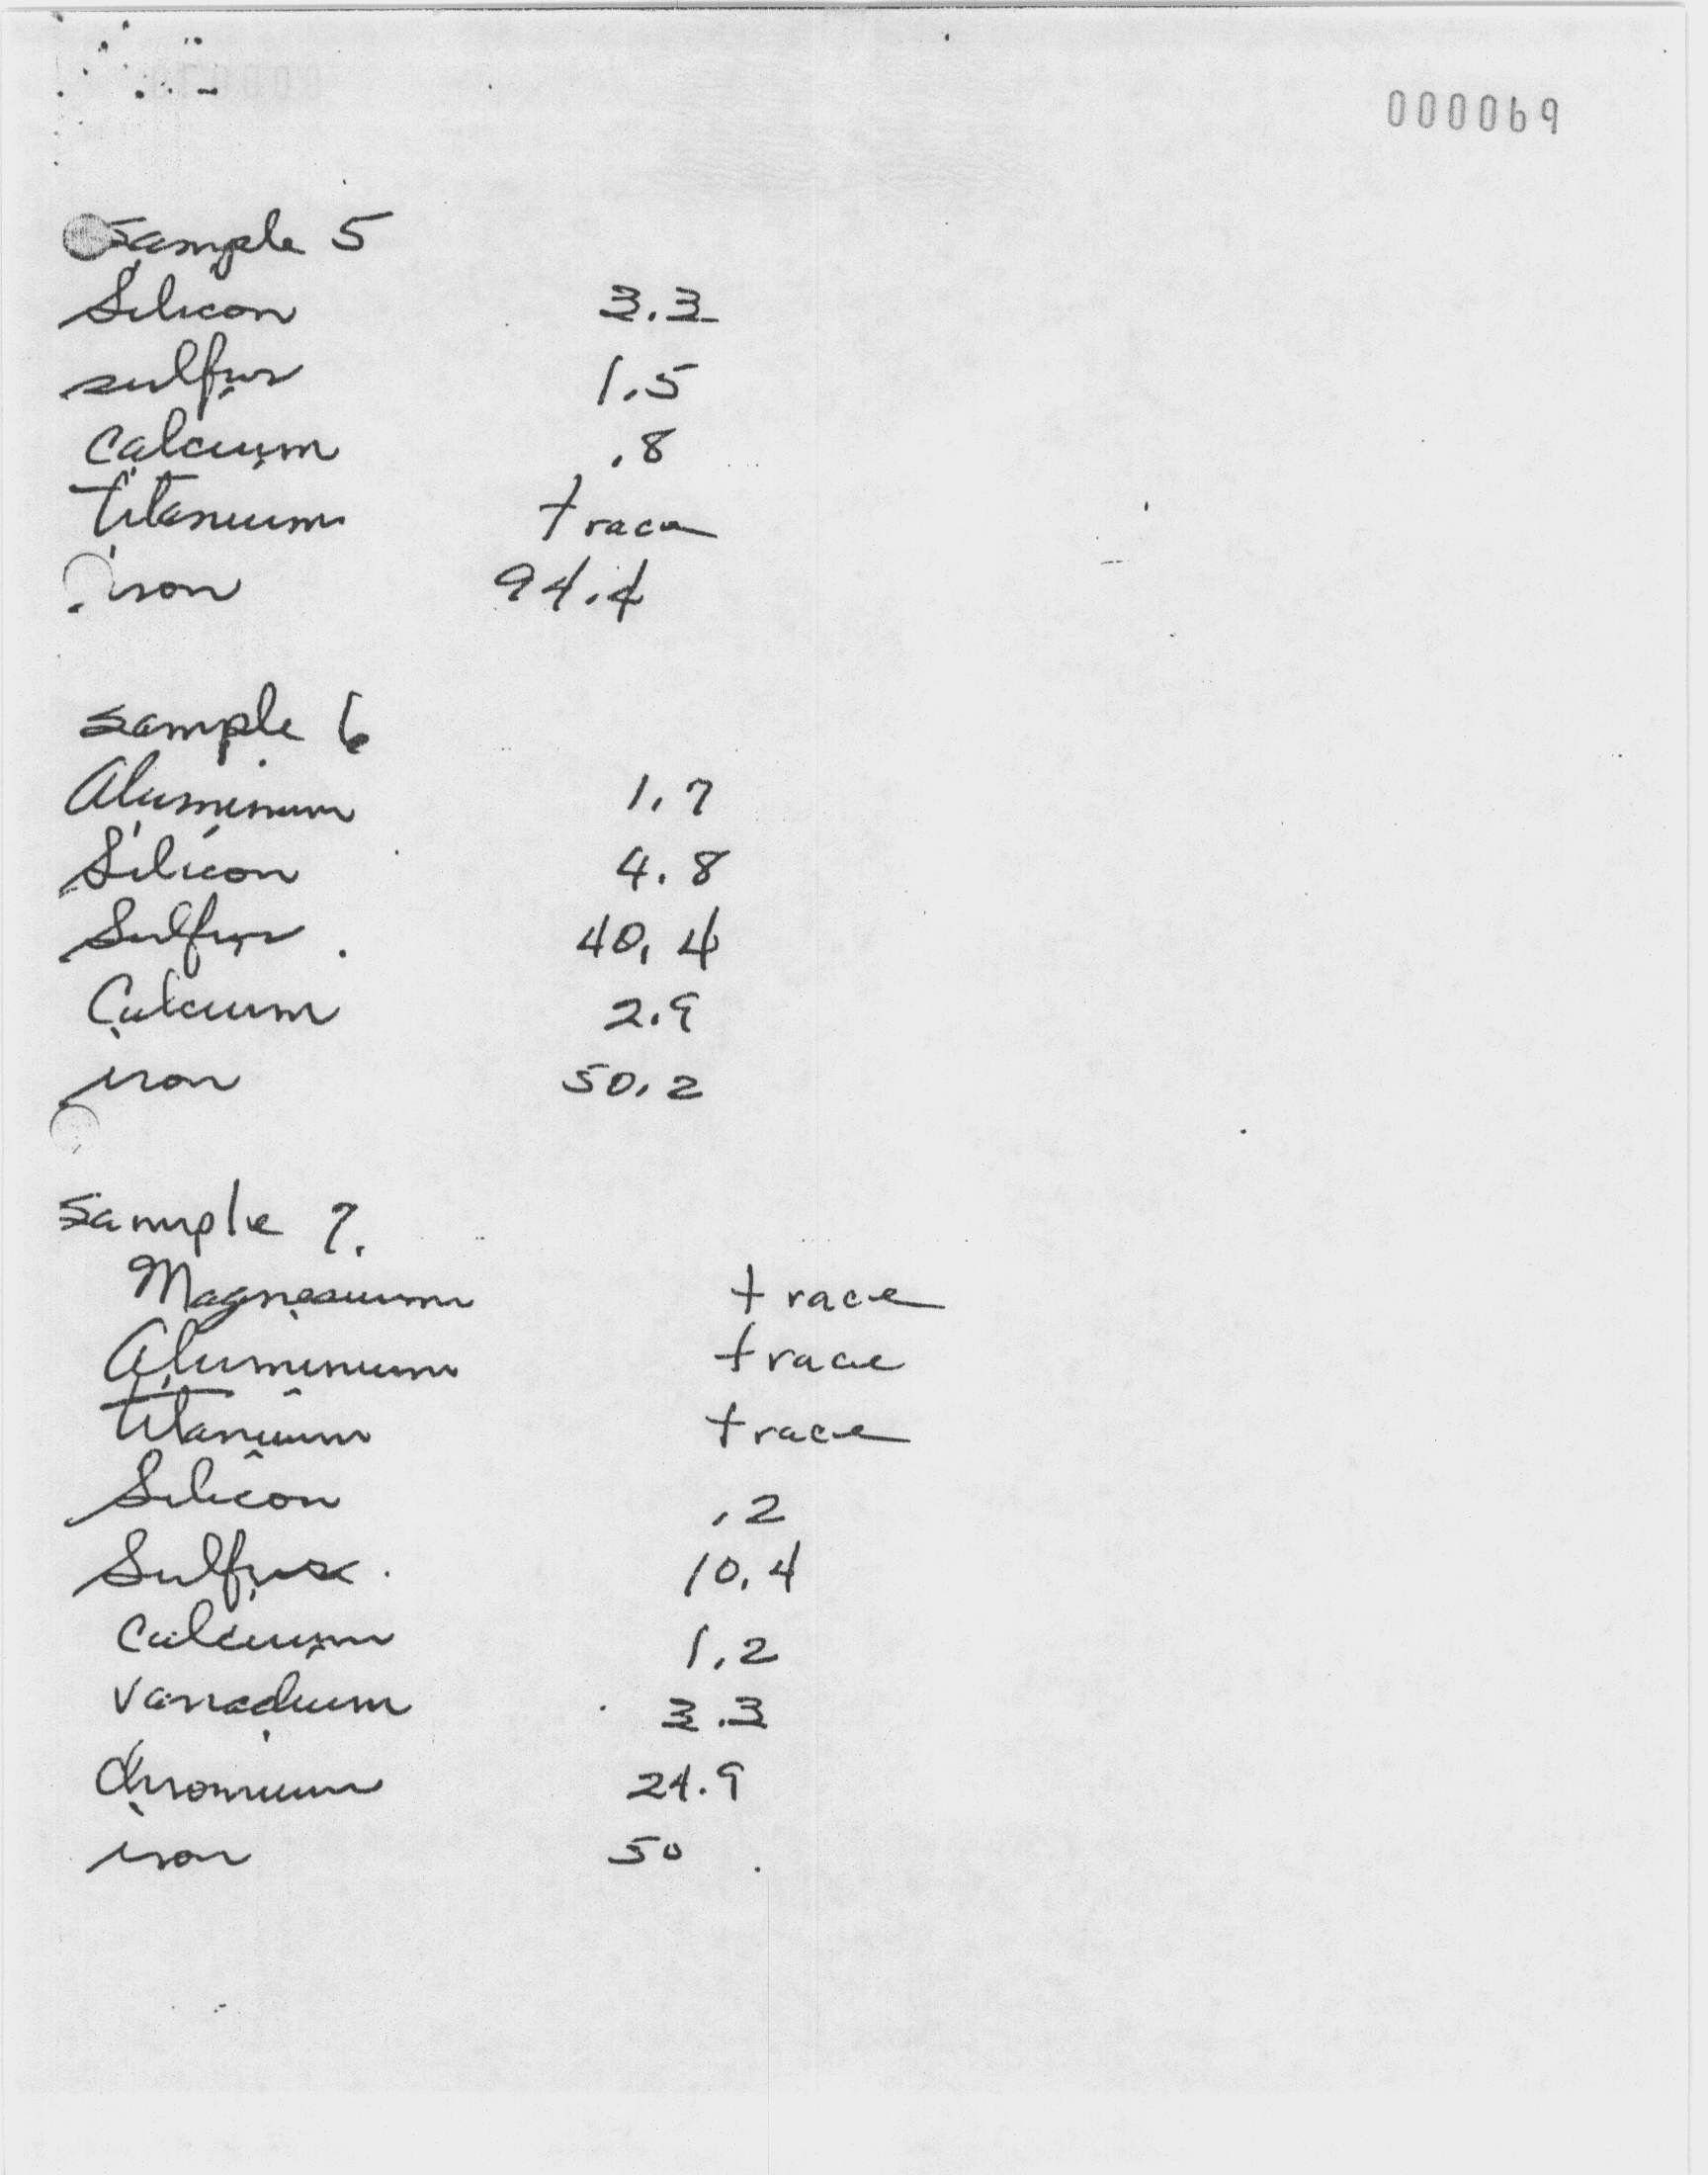 000069
Sample 5
Silicon 3.3
sulfur 1.5
Calcium .8
titanium trace
iron 94.4
sample 6
Aluminum 1.7
Silicon 4.8
Sulfur 40.4
Calcium 2.9
iron 50.2
Sample 7.
Magnesium trace
Aluminum trace
titanium trace
Silicon .2
Sulfur 10.4
Calcium 1.2
Vanadium 3.3
Chromium 24.9
iron 50